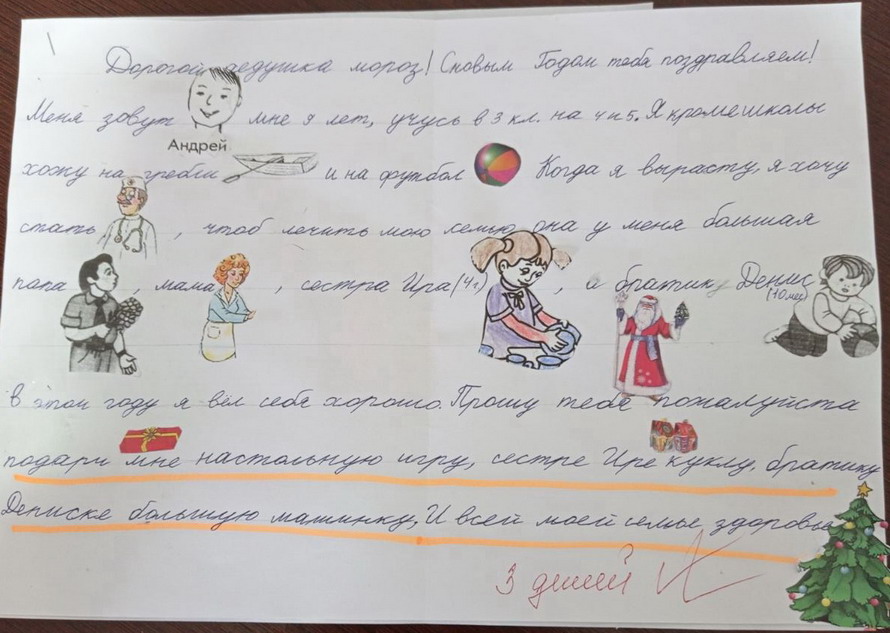 Дорогой дедушка мороз! Сновым Годом тебя поздравляем!
Меня зовут Андрей мне 9 лет, учусь в 3 кл. на 4 и 5. Я кроме школы
хожу на гребли и на футбол Когда я вырасту, я хочу
стать, чтоб лечить мою семью она у меня большая
папа, мама, сестра Ира (4г), и братик Денис (10 мес)
в этом году я вёл себя хорошо. Прошу тебя пожалуйста
подари мне настольную игру, сестре Ире куклу, братику
Дениске большую машинку, И всей моей семье здоровье
3 детей